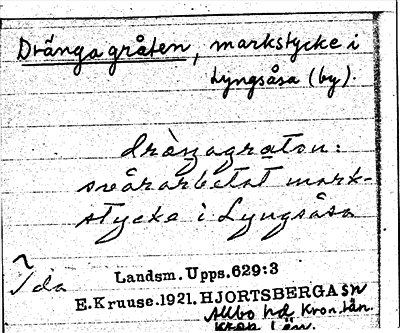 Drängagråten, markstycke i
Lyngsåsa (by).
drängagratən:
svårarbetat mark-
stycke i Lyngsåsa
Ida
Landsm. Upps. 629:3
E. Kruuse. 1921. HJORTSBERGA SN
Allbo hd, Kron. län.